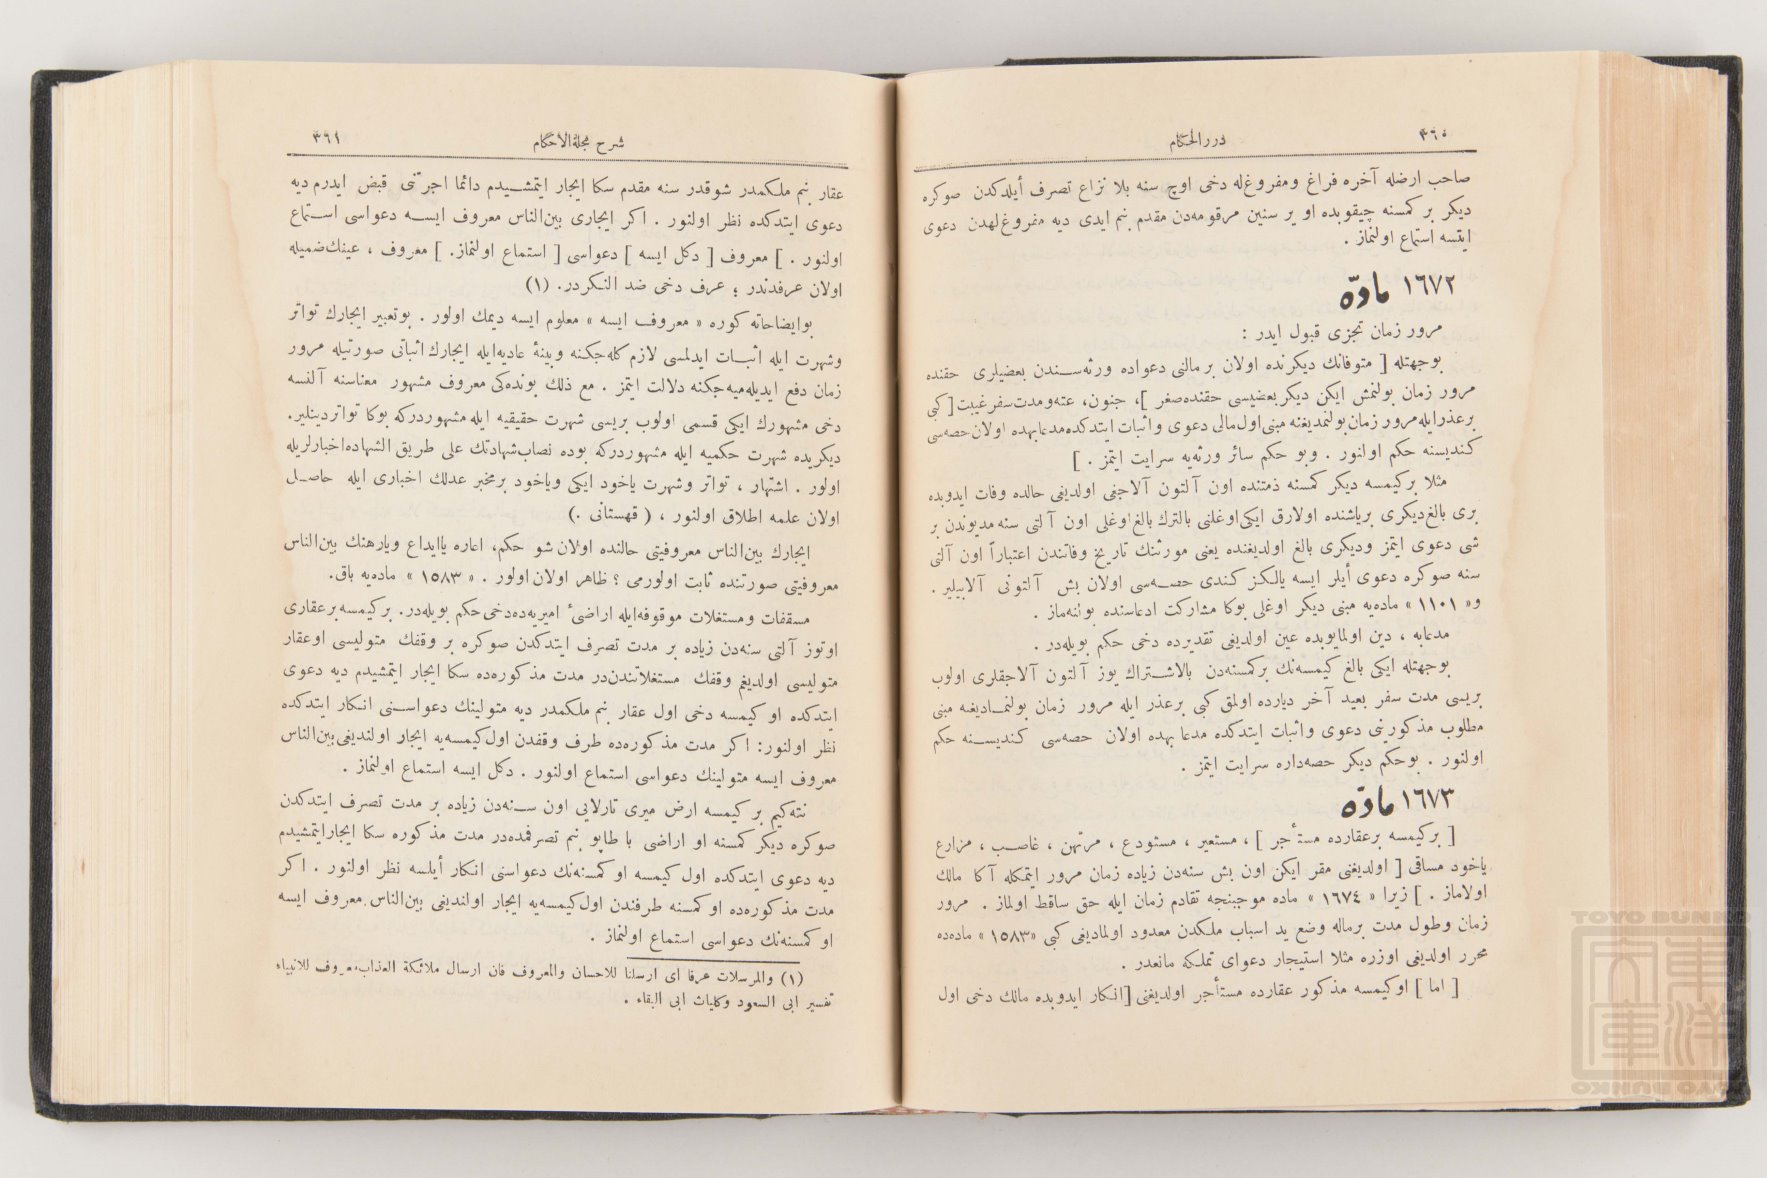 ٣٦٠
دررالحكام
صاحب ارضله آخره فراغ ومفروغ‌له دخی اوچ سنه بلا نزاع تصرف أیلدكدن صوكره
دیكر بر كمسنه چیقوبده او یر سنین مرقومه‌دن مقدم بنم ایدی دیه مفروغ‌لهدن دعوی
ایتسه استماع اولنماز .
١٦٧٢ مادّه
مرور زمان تجزی قبول ایدر :
بوجهتله [ متوفانك دیكرنده اولان بر مالنی دعواده ورثه‌سندن بعضیلری حقنده
مرور زمان بولنمش ایكن دیكر بعضیسی حقنده صغر ]، جنون، عته ومدت سفر غیبت [ كبی
بر عذر ایله مرور زمان بولنمدیغنه مبنی اول مالی دعوی واثبات ایتدكده مدعابهده اولان حصه‌سی
كندیسنه حكم اولنور . وبو حكم سائر ورثه‌یه سرایت ایتمز . ]
مثلا بر كیمسه دیكر كمسنه ذمتنده اون آلتون آلاجغی اولدیغی حالده وفات ایدوبده
بری بالغ دیكری بر یاشنده اولارق ایكی اوغلنی بالترك بالغ اوغلی اون آلتی سنه مدیوندن بر
شی دعوی ایتمز ودیكری بالغ اولدیغنده یعنی مورثنك تاریخ وفاتندن اعتباراً اون آلتی
سنه صوكره دعوی أیلر ایسه یالكز كندی حصه‌سی اولان بش آلتونی آلابیلیر .
و« ١١٠١ » ماده‌یه مبنی دیكر اوغلی بوكا مشاركت ادعاسنده بولنه‌ماز .
مدعابه ، دین اولمایوبده عین اولدیغی تقدیرده دخی حكم بویله‌در .
بوجهتله ایكی بالغ كیمسه‌نك بر كمسنه‌دن بالاشتراك یوز آلتون آلاجقلری اولوب
بریسی مدت سفر بعید آخر دیارده اولمق كبی بر عذر ایله مرور زمان بولنمادیغنه مبنی
مطلوب مذكورینی دعوی واثبات ایتدكده مدعابهده اولان حصه‌سی كندیسنه حكم
اولنور . بوحكم دیكر حصه‌داره سرایت ایتمز .
١٦٧٣ مادّه
[ بر كیمسه بر عقارده مستأجر ] ، مستعیر ، مستودع ، مرتهن ، غاصب ، مزارع
یاخود مساقی [ اولدیغنی مقر ایكن اون بش سنه‌دن زیاده زمان مرور ایتمكله آكا مالك
اولاماز . ] زیرا « ١٦٧٤ » ماده موجبنجه تقادم زمان ایله حق ساقط اولماز . مرور
زمان وطول مدت بر ماله وضع ید اسباب ملكدن معدود اولمادیغی كبی «١٥٨٣» ماده‌ده
محرر اولدیغی اوزره مثلا استیجار دعوای تملكه مانعدر .
[ اما ] او كیمسه مذكور عقارده مستأجر اولدیغنی [ انكار ایدوبده مالك دخی اول
شرح مجلةالاحكام
٣٦١
عقار بنم ملكمدر شوقدر سنه مقدم سكا ایجار ایتمشیدم دائما اجرتنی قبض ایدرم دیه
دعوی ایتدكده نظر اولنور . اكر ایجاری بین‌الناس معروف ایسه دعواسی استماع
اولنور . ] معروف [ دكل ایسه ] دعواسی [ استماع اولنماز. ] معروف ، عینك ضمیله
اولان عرفدندر ؛ عرف دخی ضد النكردر. (١)
بوایضاحاته كوره « معروف ایسه » معلوم ایسه دیمك اولور . بوتعبیر ایجارك تواتر
وشهرت ایله اثبات ایدلمسی لازم كله‌جكنه وبینهٔ عادیه‌ایله ایجارك اثباتی صورتیله مرور
زمان دفع ایدیله‌میه‌جكنه دلالت ایتمز . مع ذلك بونده‌كی معروف مشهور معناسنه آلنسه
دخی مشهورك ایكی قسمی اولوب بریسی شهرت حقیقیه ایله مشهوردركه بوكا تواتر دینلیر.
دیكریده شهرت حكمیه ایله مشهوردركه بوده نصاب شهادتك علی طریق الشهاده اخبارلریله
اولور . اشتهار ، تواتر وشهرت یاخود ایكی ویاخود بر مخبر عدلك اخباری ایله حاصل
اولان علمه اطلاق اولنور ، ( قهستانی .)
ایجارك بین‌الناس معروفیتی حالنده اولان شو حكم، اعاره یاایداع ویارهنك بین‌الناس
معروفیتی صورتنده ثابت اولورمی ؟ ظاهر اولان اولور . « ١٥٨٣ » ماده‌یه باق.
مسقفات ومستغلات موقوفه‌ایله اراضیٔ امیریه‌ده دخی حكم بویله‌در. بر كیمسه بر عقاری
اوتوز آلتی سنه‌دن زیاده بر مدت تصرف ایتدكدن صوكره بر وقفك متولیسی او عقار
متولیسی اولدیغم وقفك مستغلاتندن‌در مدت مذكوره‌ده سكا ایجار ایتمشیدم دیه دعوی
ایتدكده او كیمسه دخی اول عقار بنم ملكمدر دیه متولینك دعواسنی انكار ایتدكده
نظر اولنور: اكر مدت مذكوره‌ده طرف وقفدن اول كیمسه‌یه ایجار اولندیغی بین‌الناس
معروف ایسه متولینك دعواسی استماع اولنور . دكل ایسه استماع اولنماز .
نته‌كیم بر كیمسه ارض میری تارلایی اون سنه‌دن زیاده بر مدت تصرف ایتدكدن
صوكره دیكر كمسنه او اراضی با طاپو بنم تصرفمده‌در مدت مذكوره سكا ایجار ایتمشیدم
دیه دعوی ایتدكده اول كیمسه او كمسنه‌نك دعواسنی انكار أیلسه نظر اولنور . اكر
مدت مذكوره‌ده او كمسنه طرفندن اول كیمسه‌یه ایجار اولندیغی بین‌الناس معروف ایسه
او كمسنه‌نك دعواسی استماع اولنماز .
(١) والمرسلات عرفا ای ارسلنا للاحسان والمعروف فان ارسال ملائكة العذاب معروف للانبیاء
تفسیر ابی السعود وكلیات ابی البقاء .
TOYO BUNKO
東洋文庫
TOYO BUNKO